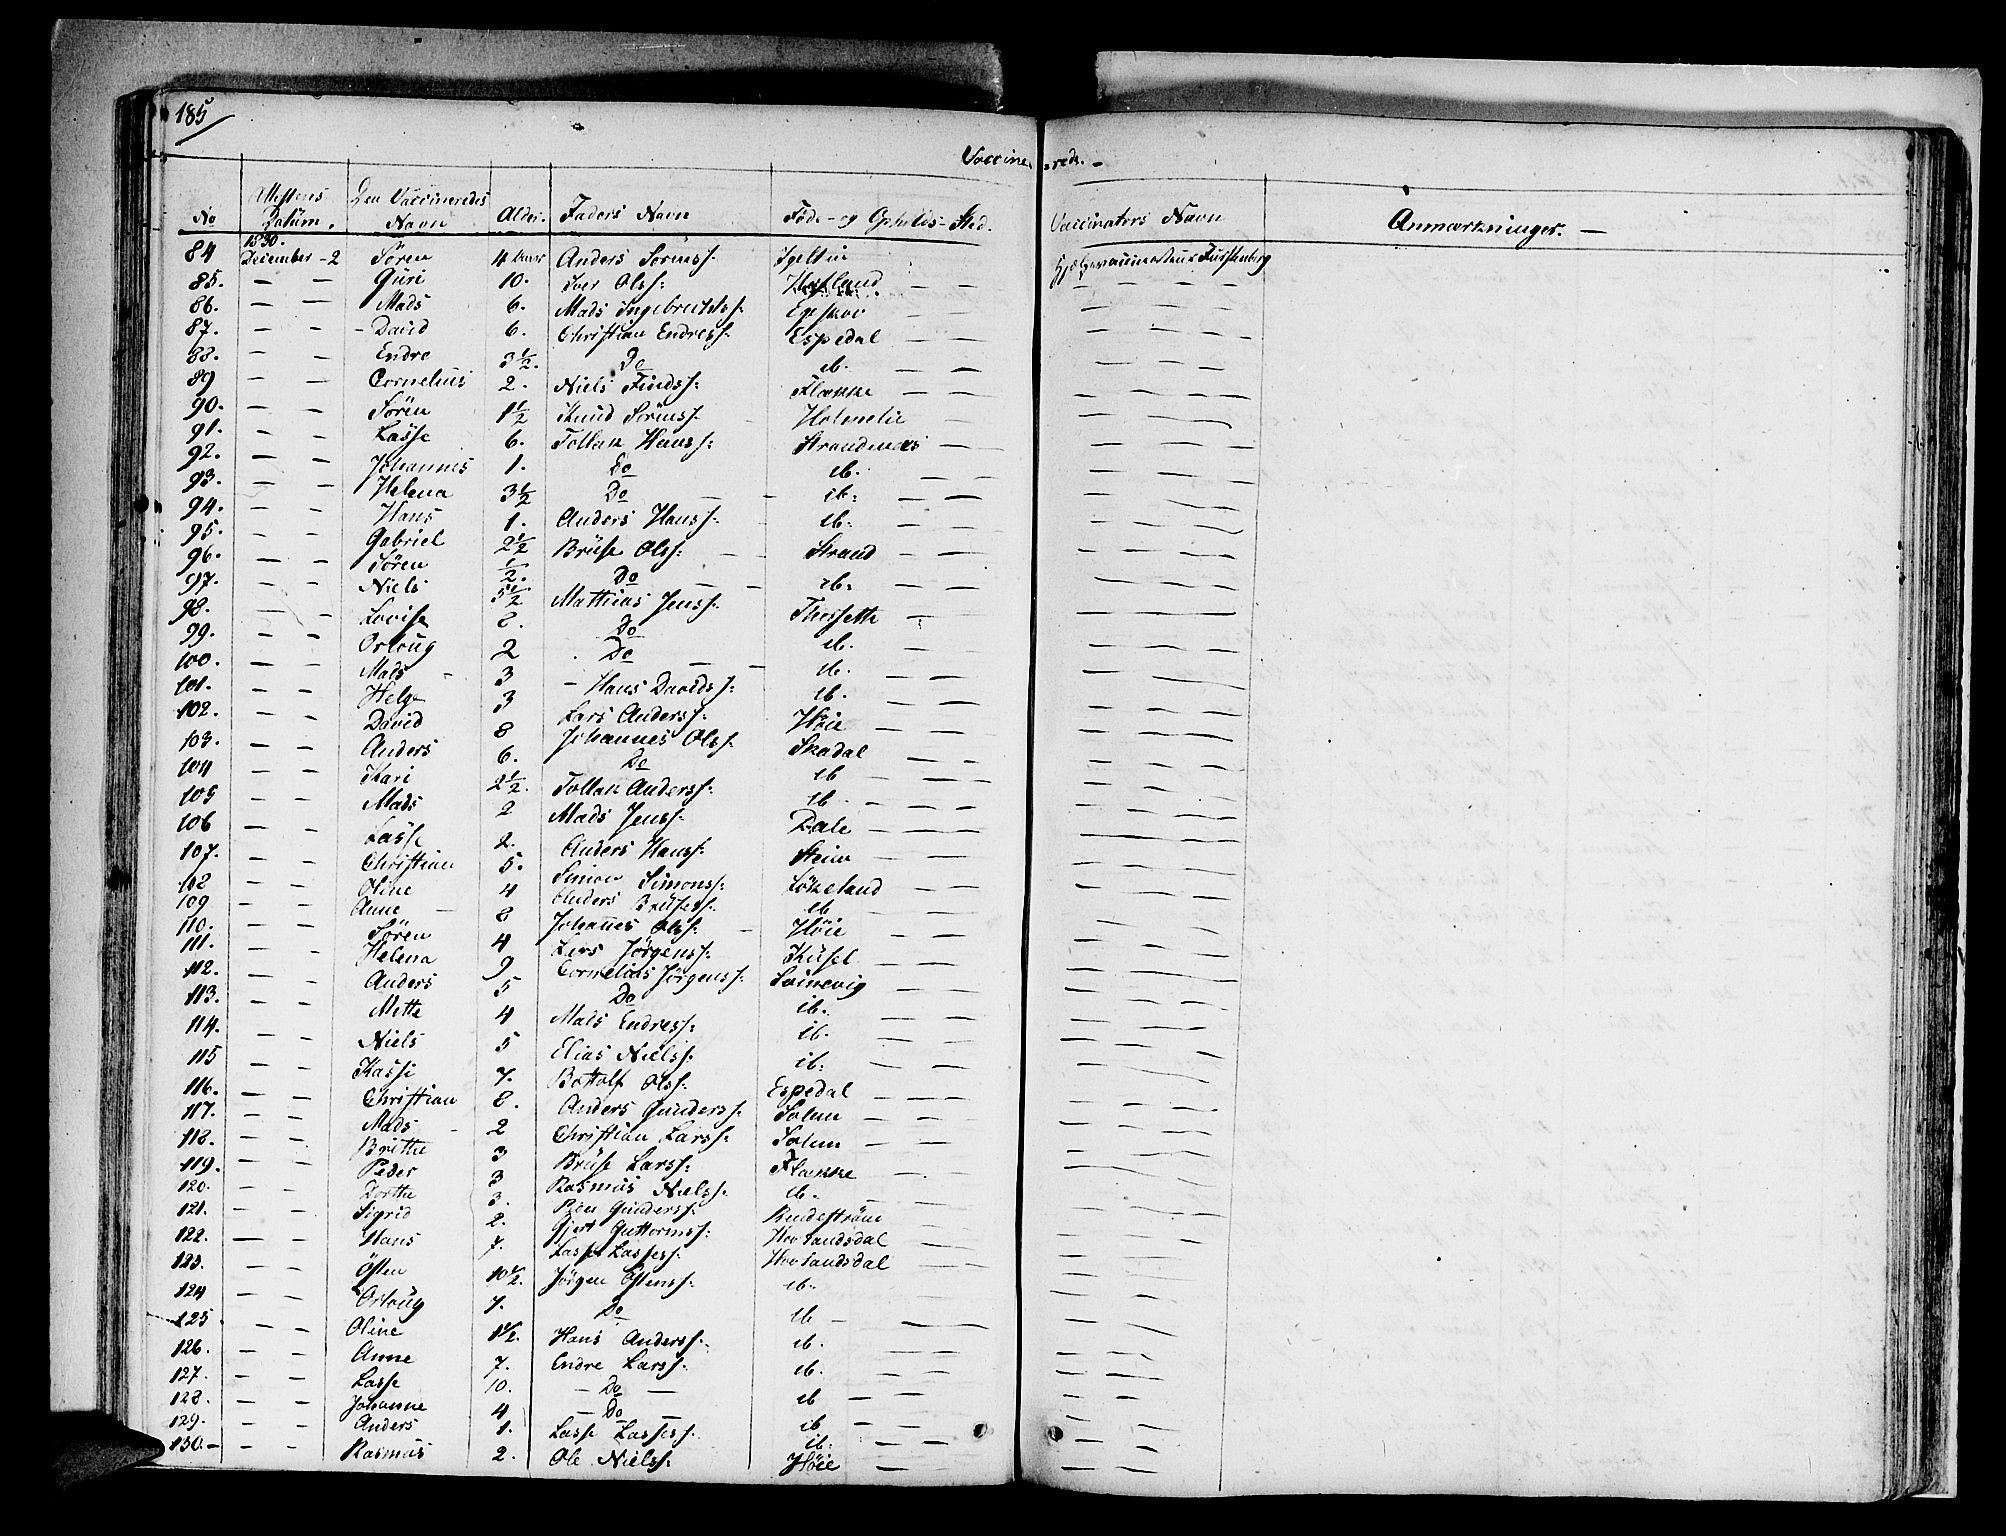 185
Vaccine- =rede. -
No | Attestens Datum. | Den Vaccineredes Navn | Alder. | Faders Navn | Føde- og Opholds-Sted. | Vaccinators Navn | Anmærkninger. -
84 | 1830. December - 2 | Søren | 4 Aar | Anders Sörenss: | | Hjelpevaccinateur Furstenberg
85. | - - | Guri | 10. | Iver Olss: | - -
86. | - - | Mads | 6. | Mads Ingebrechtss: | Egeskov - -
87. | - - | David | 6. | Christian Endress: | Espedal - -
88. | - - | Endre | 3 1/2. | Do | ib. - -
89 | - - | Cornelius | 2. | Niels Findss: | Flække - -
90. | - - | Søren | 1 1/2 | Knud Sörenss: | Holmelie
91. | - - | Lasse | 6. | Tollak Hanss: | Strandenæs -
92. | - - | Johannes | 1. | Do | ib. - -
93. | - - | Helena | 3 1/2 | Do | ib: - -
94. | - - | Hans | 1. | Anders Hanss: | ib: - -
95. | - - | Gabriel | 2 1/2 | Brüse Olss: | Strand - -
96. | - - | Søren | 1/2. | Do | ib: - -
97. | - - | Niels | 5 1/2 | Mathias Jenss: | Thossette -
98. | - - | Lovise | 8. | Do | ib. - -
99. | - - | Orloug | 2 | Do | ib. - -
100. | - - | Mads | 3 | Hans Davidss: | ib. - -
101. | - - | Helge | 3 | Lars Anderss: | Høie - -
102. | - - | David | 8 | Johannes Olss: | Skadal - -
103. | - - | Anders | 6. | Do | ib - -
104 | - - | Kari | 2 1/2. | Tollak Anderss: | ib. - -
105 | - - | Mads | 2 | Mads Jenss: | Dale - -
106 | - - | Lasse | 2. | Anders Hanss: | Steien - -
107. | - - | Christian | 5. | Simon Simonss: | Lökeland - -
108 | - - | Oline | 4 | Anders Brüsess: | ib - -
109 | - - | Anne | 8 | Johannes Olss: | Høie - -
110. | - - | Søren | 4 | Lars Jørgenss: | Küsel - -
111. | - - | Helena | 9 | Cornelius Jørgenss: | Svinevig - -
112. | - - | Anders | 5 | Do | ib. - -
113. | - - | Mette | 4 | Mads Endress: | ib. - -
114. | - - | Niels | 5 | Elias Nielss: | ib: - -
115 | - - | | 7. | Bottolf Olss: | Espedal - -
116. | - - | Christian | 8. | Anders Gunderss: | Solem - -
117. | - - | Mads | 2 | Christian Larss: | Solem - -
118. | - - | Brithe | 3 | Brüse Larss: | Flække - -
119. | - - | Peder | 3 | Rasmus Nielss: | ib. - -
120. | - - | Dorthe | 3. | Gunderss: | - -
121. | - - | Sigrid | 2. | Gjert Guttormss: | Hovlandsdal - -
122. | - - | Hans | 7. | Lasse Lassess: | Hovlandsdal - -
123. | - - | Østen | 10 1/2. | Jørgen Østenss: | ib. - -
124 | - - | Orloug | 7. | Do | ib - -
125. | - - | Oline | 1 1/2. | Hans Anderss: | ib. - -
126. | - - | Anne | 7. | Endre Larss: | ib. - -
127. | - - | Lasse | 10. | - Do - | ib - -
128. | - - | Johanne | 4 | - Do - | ib - -
129. | - - | Anders | 1. | Lasse Lassess: | ib: - -
130. - | - - | Rasmus | 2. | Ole Nielss: | Høie - -